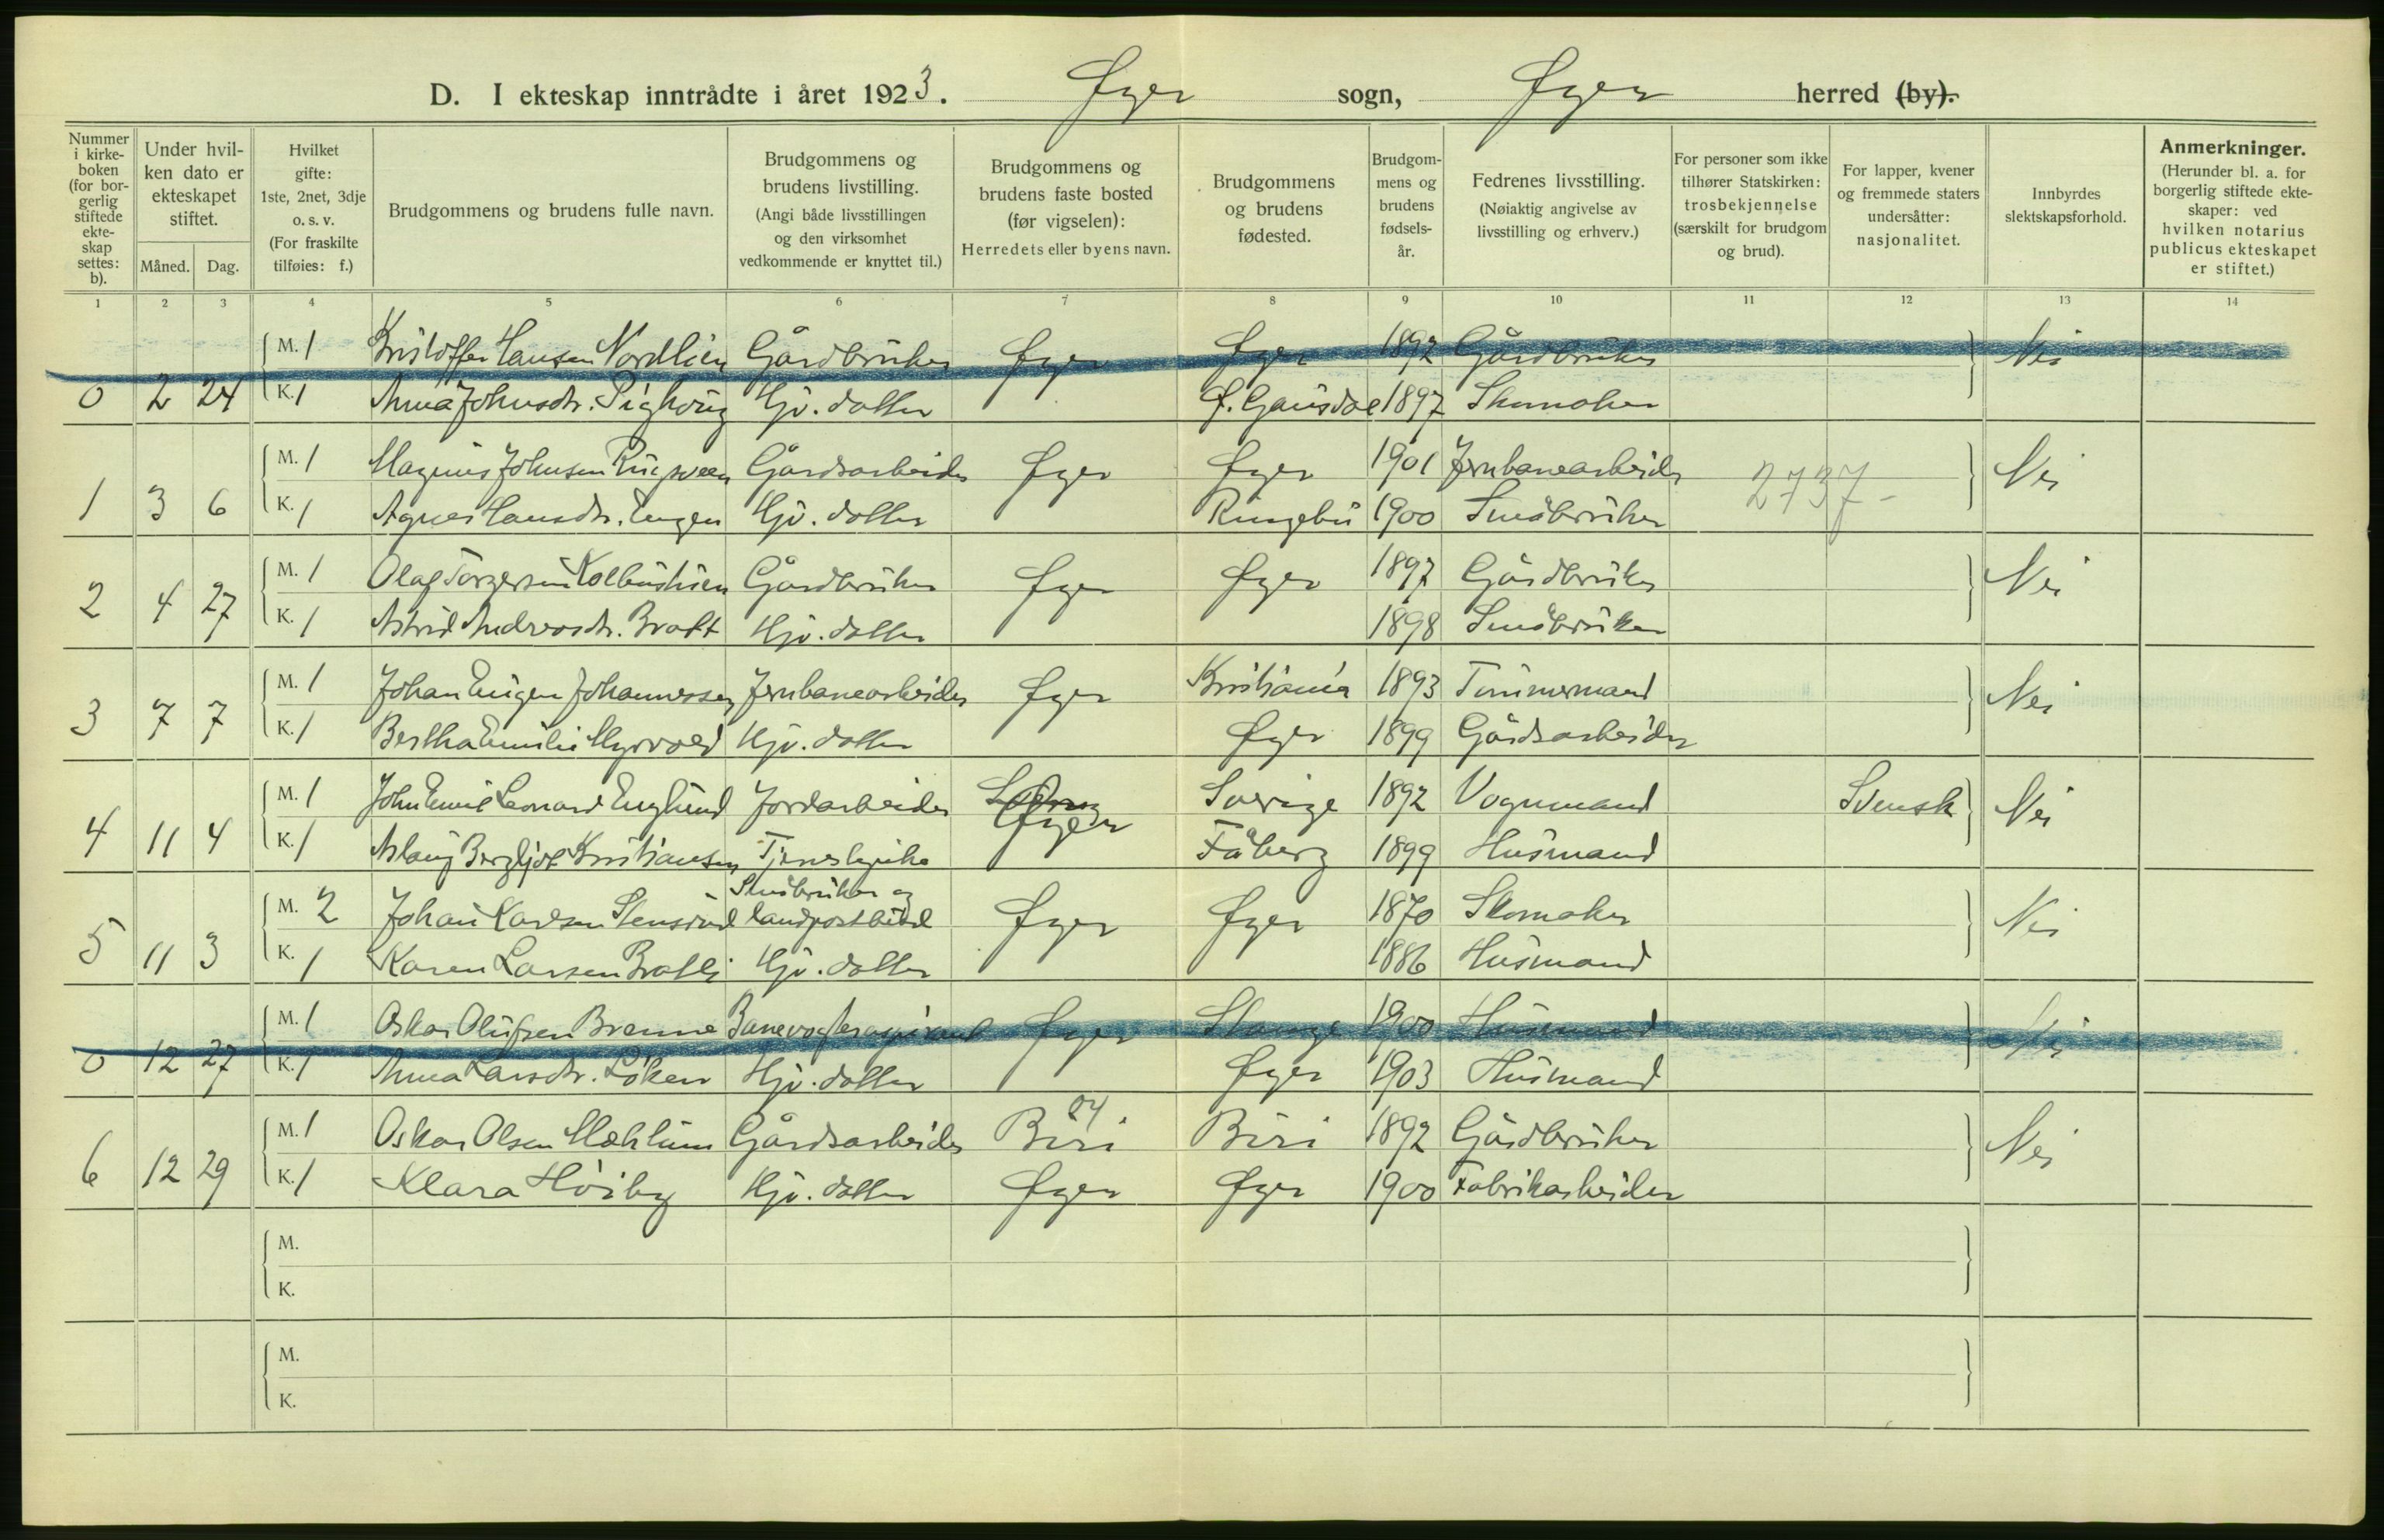 D. I ekteskap inntrådte i året 1923. Øyer sogn, Øyer herred (by).
Nummer i kirkeboken (for borgerlig stiftede ekteskap settes: b).
Under hvilken dato er ekteskapet stiftet.
Måned. Dag.
Hvilket gifte: 1ste, 2net, 3dje o. s. v. (For fraskilte tilføies: f.)
Brudgommens og brudens fulle navn.
Brudgommens og brudens livstilling. (Angi både livsstillingen og den virksomhet vedkommende er knyttet til.)
Brudgommens og brudens faste bosted (før vigselen): Herredets eller byens navn.
Brudgommens og brudens fødested.
Brudgommens og brudens fødselsår.
Fedrenes livsstilling. (Nøiaktig angivelse av livsstilling og erhverv.)
For personer som ikke tilhører Statskirken: trosbekjennelse (særskilt for brudgom og brud).
For lapper, kvener og fremmede staters undersåtter: nasjonalitet.
Innbyrdes slektskapsforhold.
Anmerkninger. (Herunder bl. a. for borgerlig stiftede ekteskaper: ved hvilken notarius publicus ekteskapet er stiftet.)
1 2 3 4 5 6 7 8 9 10 11 12 13 14
M. 1 Kristoffer Hansen Nordlien Gårdbruker Øyer Øyer 1892 Gårdbruker Nei
0 2 24 K. 1 Anna Johnsdtr. Hjv. datter Ø. Gausdal 1897 Skomaker
M. 1 Magnus Johnsen Gårdsarbeider Øyer Øyer 1901 Jernbanearbeider 2737- Nei
1 3 6 K. 1 Agnes Hansdtr. Engen Hjv. datter Ringebu 1900 Småbruker
M. 1 Olaf Torgersen Gårdbruker Øyer Øyer 1897 Gårdbruker Nei
2 4 27 K. 1 Astrid Andreasdtr. Bratt Hjv. datter 1898 Småbruker
M. 1 Johan Eugen Johannessen Jernbanearbeider Øyer Kristiania 1893 Tømmermand Nei
3 7 7 K. 1 Bertha Emilie Myrvold Hjv. datter Øyer 1899 Gårdsarbeider
M. 1 John Emil Leonard Englund Jordarbeider Øyer Sverige 1892 Vognmand Svensk Nei
4 11 4 K. 1 Aslaug Bergljot Kristiansen Tjenestepike Fåberg 1899 Husmand
Småbruker og
M. 2 Johan Karlsen Stensrud landpostbud Øyer Øyer 1870 Skomaker Nei
5 11 3 K. 1 Karen Larsen Bratli Hjv. datter 1886 Husmand
M. 1 Oskar Olufsen Brenne Banevogteraspirant Øyer Stange 1900 Husmand Nei
0 12 27 K. 1 Anna Larsdtr. Løken Hjv. datter Øyer 1903 Husmand
04
M. 1 Oskar Olsen Mæhlum Gårdsarbeider Biri Biri 1892 Gårdbruker Nei
6 12 29 K. 1 Klara Høiby Hjv. datter Øyer Øyer 1900 Fabrikarbeider
M.
K.
M.
K.